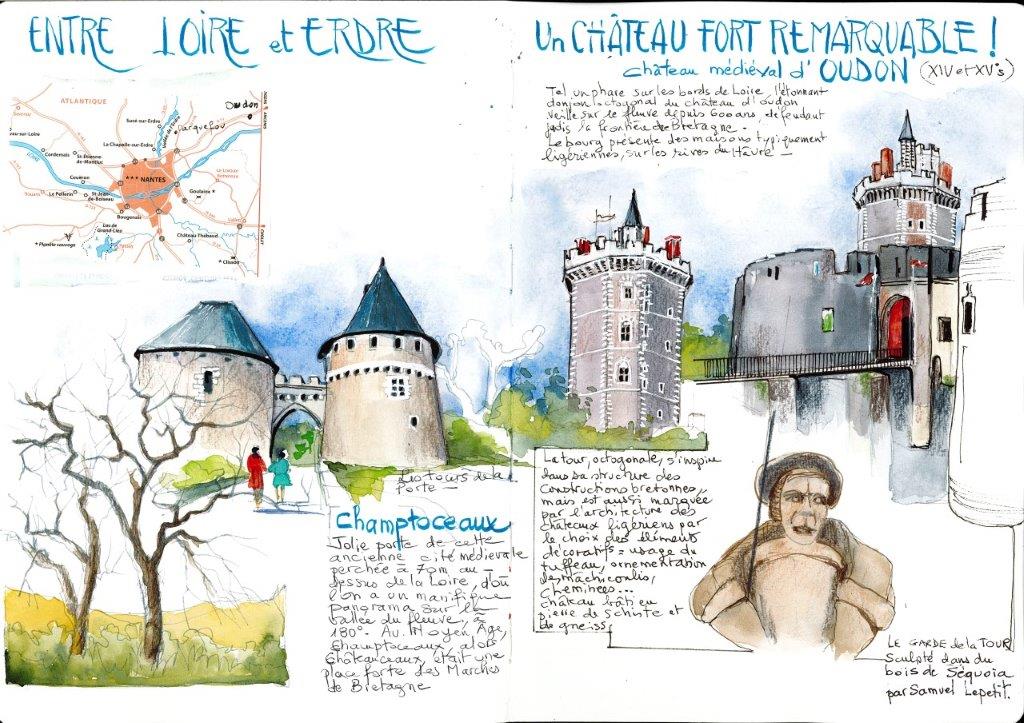 ENTRE LOIRE et ERDRE
ATLANTIQUE
Oudon
Sucé-sur-Erdre
La Chapelle-sur-Erdre
Cordemais
St-Étienne-de-Montluc
Couëron
NANTES
Le Pellerin
St-Jean-de-Boiseau
Bouguenais
Goulaine
Château Thébaud
Lac de Grand-Lieu
Planète sauvage
Clisson
Les tours de la
Porte
Champtoceaux
Jolie porte de cette
ancienne cité médiévale
perchée à 70m au-
dessus de la Loire, d'où
l'on a un manifique
panorama sur la
vallée du fleuve, à
180°. Au Moyen Age,
Champtoceaux, alors
Châteauceaux, était une
place forte des Marches
de Bretagne
Un CHÂTEAU FORT REMARQUABLE !
château médiéval d'OUDON (XIV et XV°s)
Tel un phare sur les bords de Loire, l'étonnant
donjon octogonal du château d'oudon
veille sur le fleuve depuis 600 ans, défendant
jadis la frontière de Bretagne.
Le bourg présente des maisons typiquement
ligériennes, sur les rives du Hâvre -
La tour, octogonale, s'inspire
dans sa structure des
constructions bretonnes,
mais est aussi marquée
par l'architecture des
châteaux ligériens par
le choix des éléments
décoratifs = usage du
tuffeau, ornementation
des mâchicoulis,
cheminées...
château bâti en
pierre de schiste et
de gneiss
LE GARDE de la TOUR
Sculpté dans du
bois de Séquoia
par Samuel Lepetit.